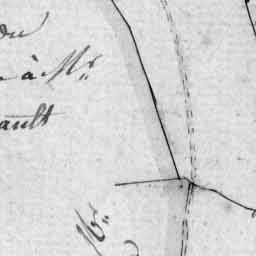 du
à Mr
ault
Mr